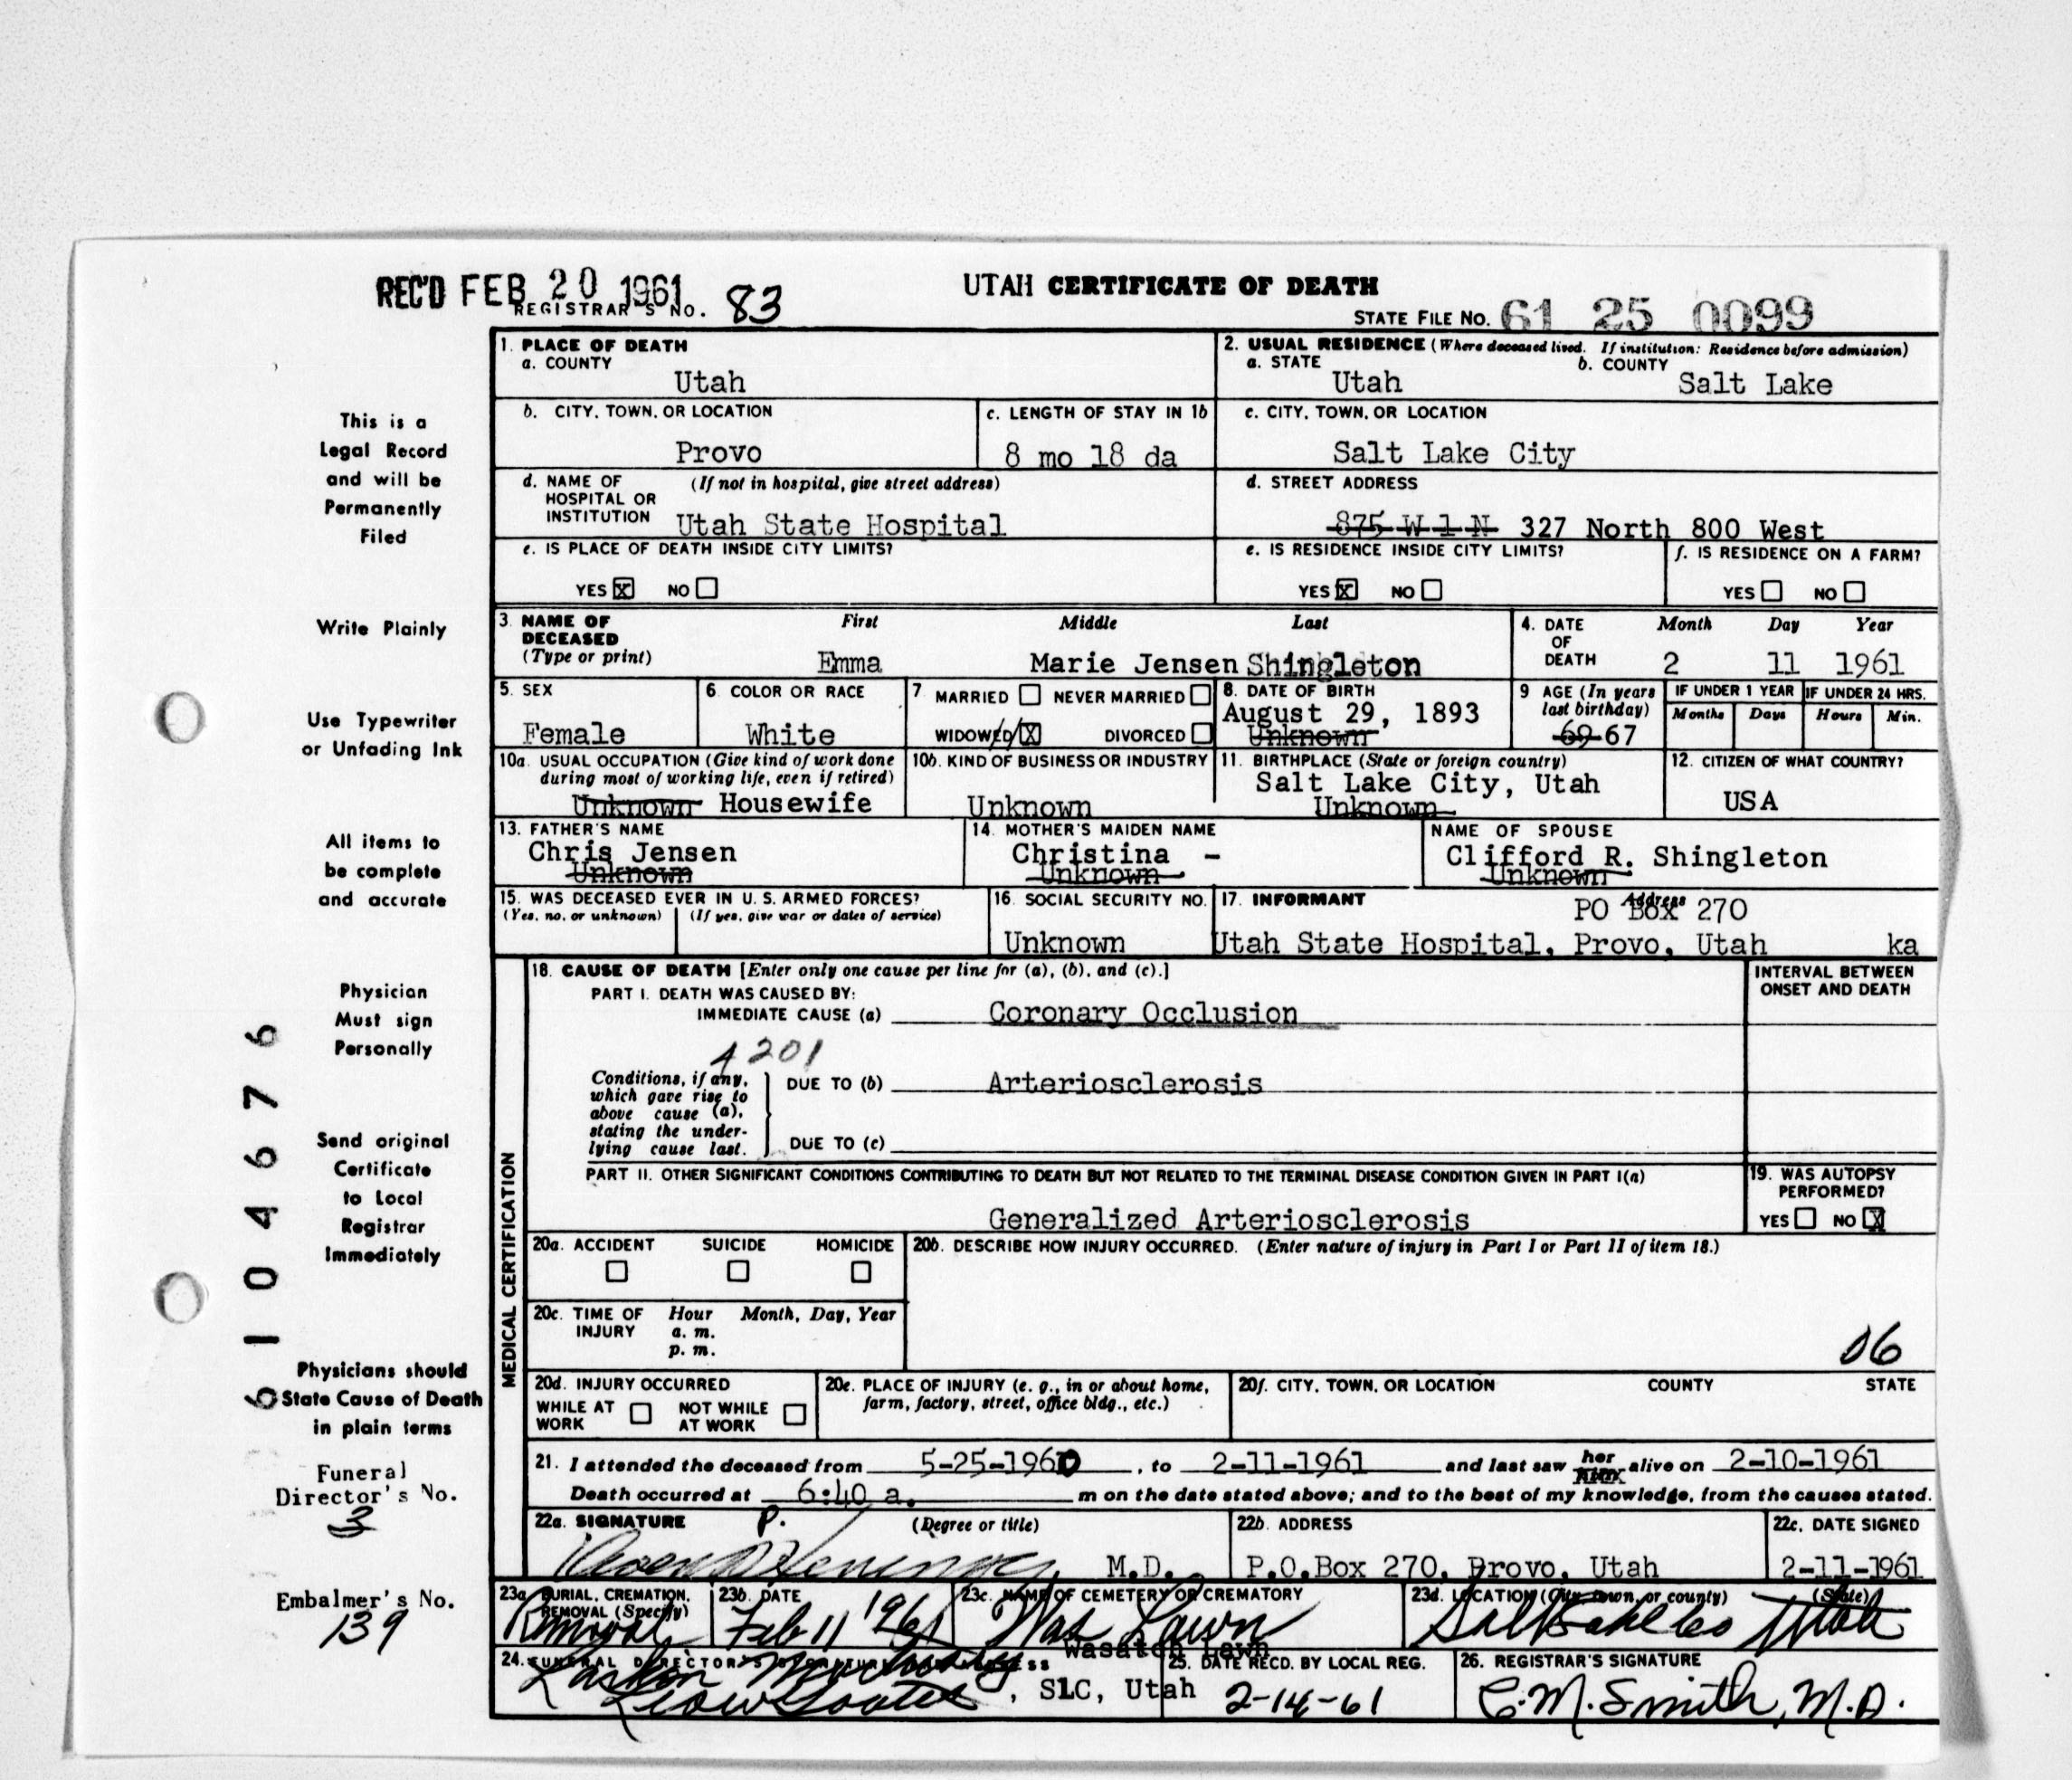 REC'D FEB 20 1961
REGISTRAR'S NO. 83
UTAH CERTIFICATE OF DEATH
STATE FILE NO. 61 25 0099
This is a
Legal Record
and will be
Permanently
Filed
Write Plainly
Use Typewriter
or Unfading Ink
All items to
be complete
and accurate
Physician
Must sign
Personally
Send original
Certificate
to Local
Registrar
Immediately
Physicians should
State Cause of Death
in plain terms
Funeral
Director's No.
3
Embalmer's No.
139
6104676
1. PLACE OF DEATH
a. COUNTY
Utah
2. USUAL RESIDENCE (Where deceased lived. If institution: Residence before admission)
a. STATE b. COUNTY
Utah Salt Lake
b. CITY, TOWN, OR LOCATION
Provo
c. LENGTH OF STAY IN 1b
8 mo 18 da
c. CITY, TOWN, OR LOCATION
Salt Lake City
d. NAME OF (If not in hospital, give street address)
HOSPITAL OR
INSTITUTION Utah State Hospital
d. STREET ADDRESS
875 W 1 N 327 North 800 West
e. IS PLACE OF DEATH INSIDE CITY LIMITS?
YES X NO
e. IS RESIDENCE INSIDE CITY LIMITS?
YES X NO
f. IS RESIDENCE ON A FARM?
YES NO
3. NAME OF First Middle Last
DECEASED
(Type or print) Emma Marie Jensen Shingleton
4. DATE Month Day Year
OF
DEATH 2 11 1961
5. SEX
Female
6. COLOR OR RACE
White
7. MARRIED NEVER MARRIED
WIDOWED X DIVORCED
8. DATE OF BIRTH
August 29, 1893
Unknown
9 AGE (In years
last birthday)
69 67
IF UNDER 1 YEAR IF UNDER 24 HRS.
Months Days Hours Min.
10a. USUAL OCCUPATION (Give kind of work done
during most of working life, even if retired)
Unknown Housewife
10b. KIND OF BUSINESS OR INDUSTRY
Unknown
11. BIRTHPLACE (State or foreign country)
Salt Lake City, Utah
Unknown
12. CITIZEN OF WHAT COUNTRY?
USA
13. FATHER'S NAME
Chris Jensen
Unknown
14. MOTHER'S MAIDEN NAME
Christina -
Unknown
NAME OF SPOUSE
Clifford R. Shingleton
Unknown
15. WAS DECEASED EVER IN U. S. ARMED FORCES?
(Yes, no, or unknown) (If yes, give war or dates of service)
16. SOCIAL SECURITY NO.
Unknown
17. INFORMANT Address
PO Box 270
Utah State Hospital, Provo, Utah ka
MEDICAL CERTIFICATION
18. CAUSE OF DEATH [Enter only one cause per line for (a), (b), and (c).]
PART I. DEATH WAS CAUSED BY:
IMMEDIATE CAUSE (a) Coronary Occlusion
INTERVAL BETWEEN
ONSET AND DEATH
4201
Conditions, if any,
which gave rise to
above cause (a),
stating the under-
lying cause last.
DUE TO (b) Arteriosclerosis
DUE TO (c)
PART II. OTHER SIGNIFICANT CONDITIONS CONTRIBUTING TO DEATH BUT NOT RELATED TO THE TERMINAL DISEASE CONDITION GIVEN IN PART I(a)
Generalized Arteriosclerosis
19. WAS AUTOPSY
PERFORMED?
YES NO X
20a. ACCIDENT SUICIDE HOMICIDE
20b. DESCRIBE HOW INJURY OCCURRED. (Enter nature of injury in Part I or Part II of item 18.)
20c. TIME OF Hour Month, Day, Year
INJURY a. m.
p. m.
06
20d. INJURY OCCURRED
WHILE AT NOT WHILE
WORK AT WORK
20e. PLACE OF INJURY (e. g., in or about home,
farm, factory, street, office bldg., etc.)
20f. CITY, TOWN, OR LOCATION COUNTY STATE
21. I attended the deceased from 5-25-1960, to 2-11-1961 and last saw her him alive on 2-10-1961
Death occurred at 6:40 a. m on the date stated above; and to the best of my knowledge, from the causes stated.
22a. SIGNATURE P. (Degree or title)
M.D.
22b. ADDRESS
P.O.Box 270, Provo, Utah
22c. DATE SIGNED
2-11-1961
23a. BURIAL, CREMATION,
REMOVAL (Specify)
Removal
23b. DATE
Feb 11 1961
23c. NAME OF CEMETERY OR CREMATORY
Was Lawn
Wasatch Lawn
23d. LOCATION (City, town, or county) (State)
Salt Lake Co Utah
24. FUNERAL DIRECTOR'S SIGNATURE ADDRESS
Larkin Mortuary
, SLC, Utah
25. DATE RECD. BY LOCAL REG.
2-14-61
26. REGISTRAR'S SIGNATURE
C. M. Smith, M.D.